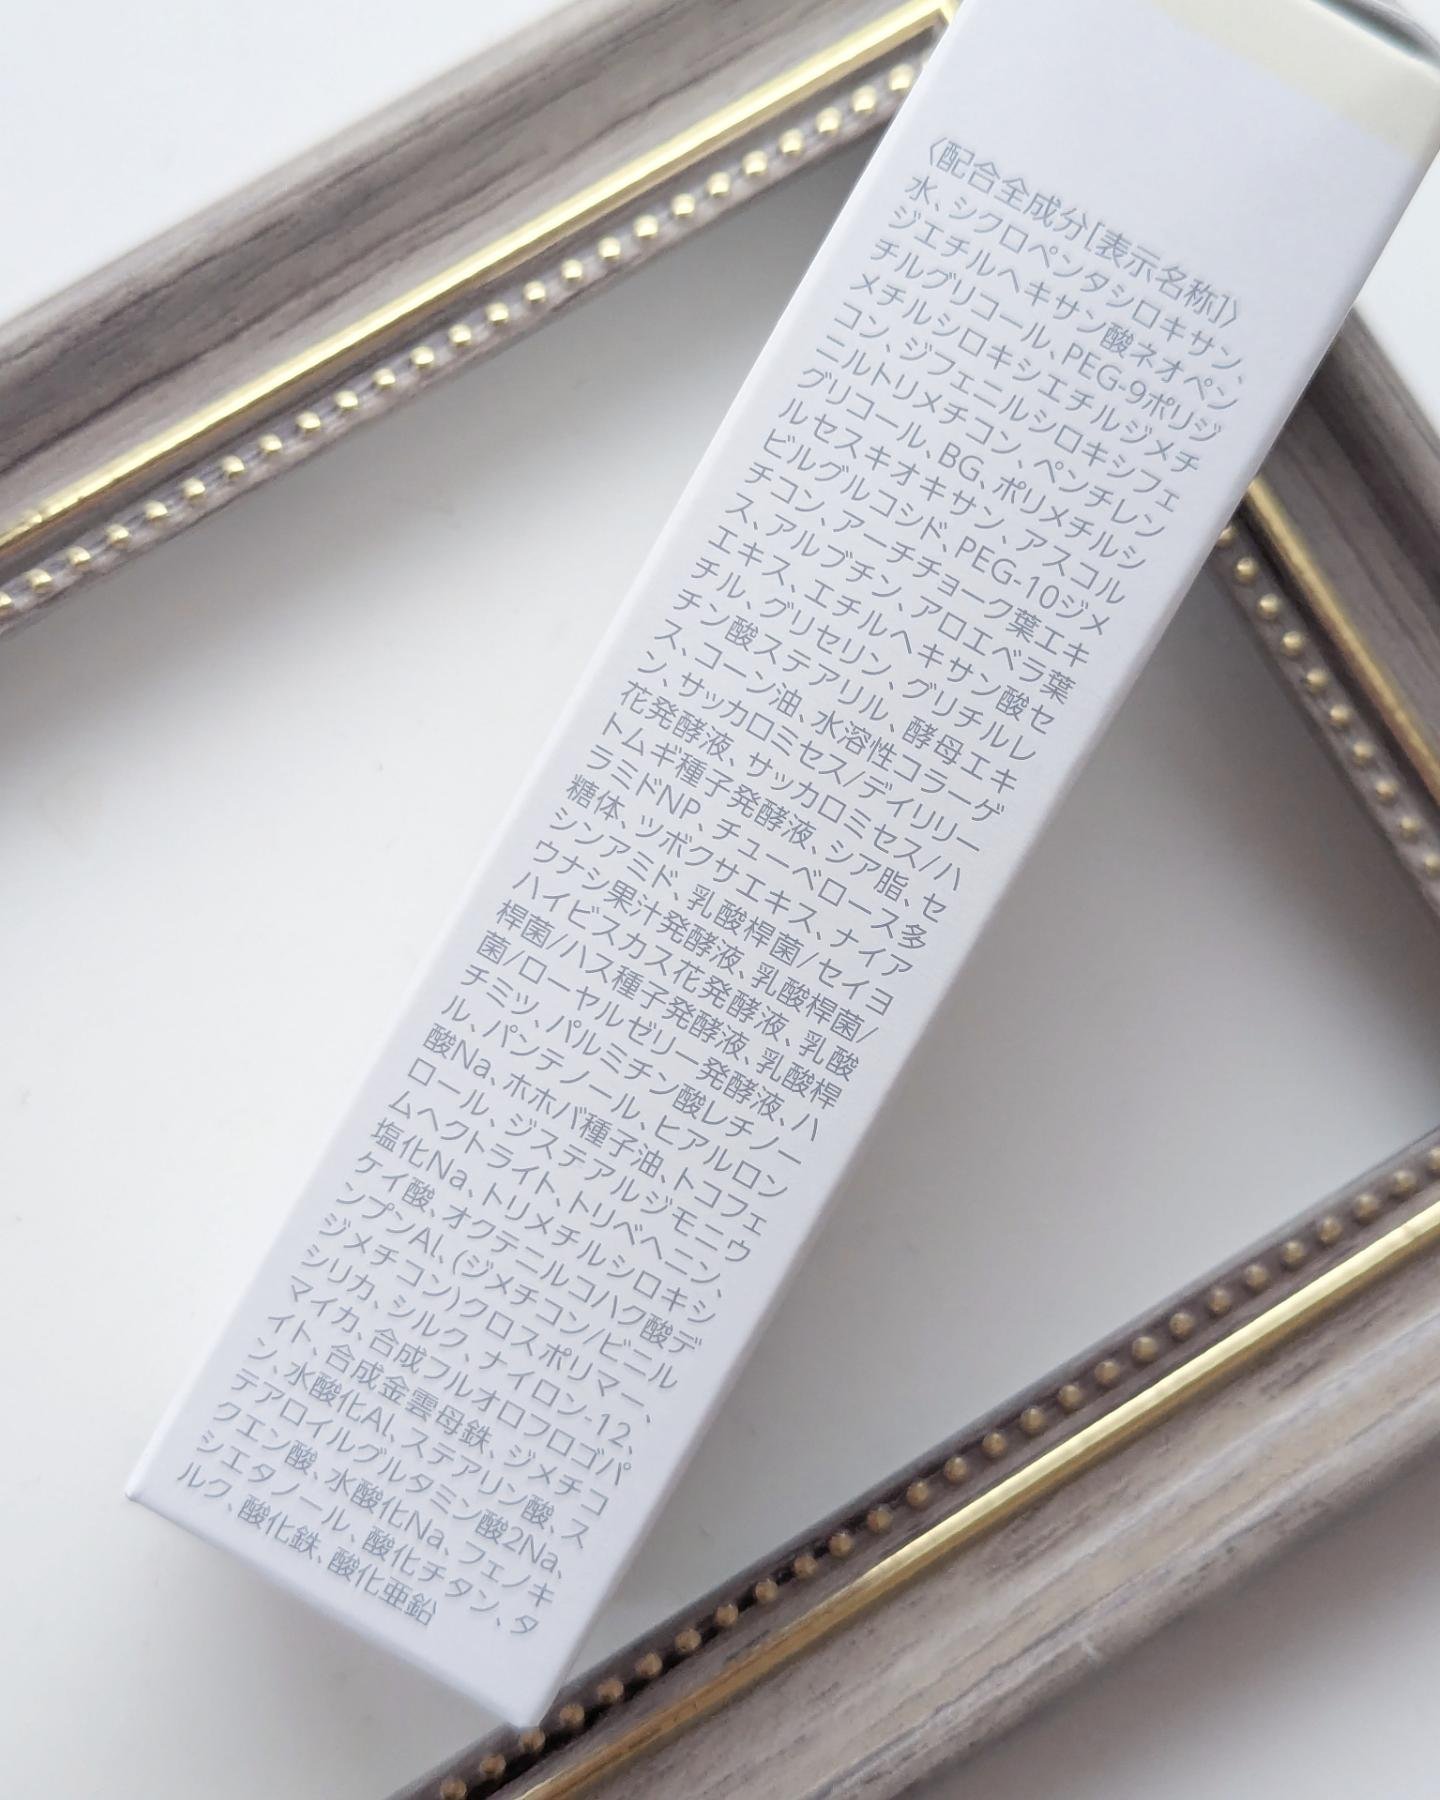 〈配合全成分[表示名称]〉
水、シクロペンタシロキサン、
ジエチルヘキサン酸ネオペン
チルグリコール、PEG-9ポリジ
メチルシロキシエチルジメチ
コン、ジフェニルシロキシフェ
ニルトリメチコン、ペンチレン
グリコール、BG、ポリメチルシ
ルセスキオキサン、アスコル
ビルグルコシド、PEG-10ジメ
チコン、アーチチョーク葉エキ
ス、アルブチン、アロエベラ葉
エキス、エチルヘキサン酸セ
チル、グリセリン、グリチルレ
チン酸ステアリル、酵母エキ
ス、コーン油、水溶性コラーゲ
ン、サッカロミセス/デイリリー
花発酵液、サッカロミセス/ハ
トムギ種子発酵液、シア脂、セ
ラミドNP、チューベロース多
糖体、ツボクサエキス、ナイア
シンアミド、乳酸桿菌/セイヨ
ウナシ果汁発酵液、乳酸桿菌/
ハイビスカス花発酵液、乳酸
桿菌/ハス種子発酵液、乳酸桿
菌/ローヤルゼリー発酵液、ハ
チミツ、パルミチン酸レチノー
ル、パンテノール、ヒアルロン
酸Na、ホホバ種子油、トコフェ
ロール、ジステアルジモニウ
ムヘクトライト、トリベヘニン、
塩化Na、トリメチルシロキシ
ケイ酸、オクテニルコハク酸デ
ンプンAl、(ジメチコン/ビニル
ジメチコン)クロスポリマー、
シリカ、シルク、ナイロン-12、
マイカ、合成フルオロフロゴパ
イト、合成金雲母鉄、ジメチコ
ン、水酸化Al、ステアリン酸、ス
テアロイルグルタミン酸2Na、
クエン酸、水酸化Na、フェノキ
シエタノール、酸化チタン、タ
ルク、酸化鉄、酸化亜鉛